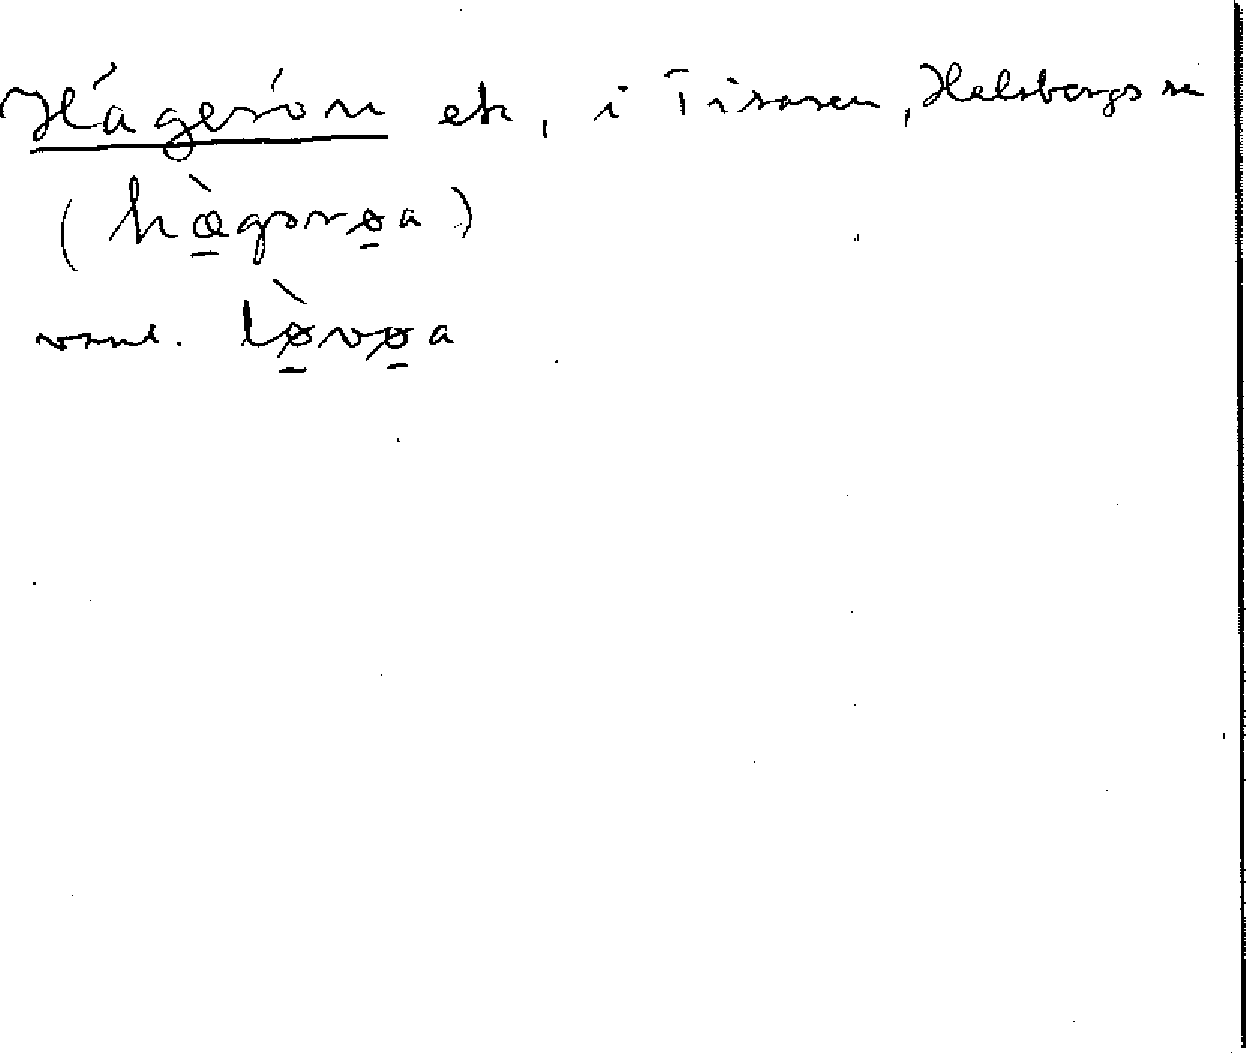 Hágerön ek, i Tisaren, Halsbergs sn
(hægərøa)
vanl. lø̀vøa